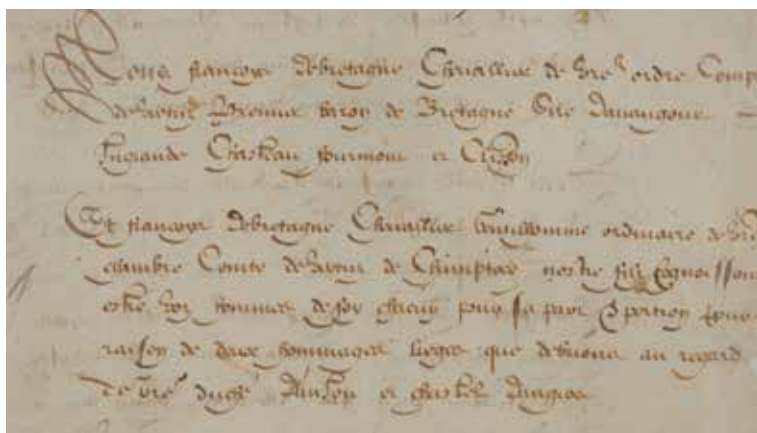 Nous francoys debretagne Chevallier de vre ordre Comp
de vertuz Premier baron de Bretagne Sire davaugour
Ingrande Chasteau fourmont et Clisson
Et francoys debretagne Chevallier gentilhomme ordinaire de vre
chambre Comte de vertuz de Chimptoce nostre filz Cognoissons
estre voz hommes de foy chacun pour sa part & portion pour
raison de deux hommages lieges que debvons au regard
de vre duche Danjou et chastel Dangiers